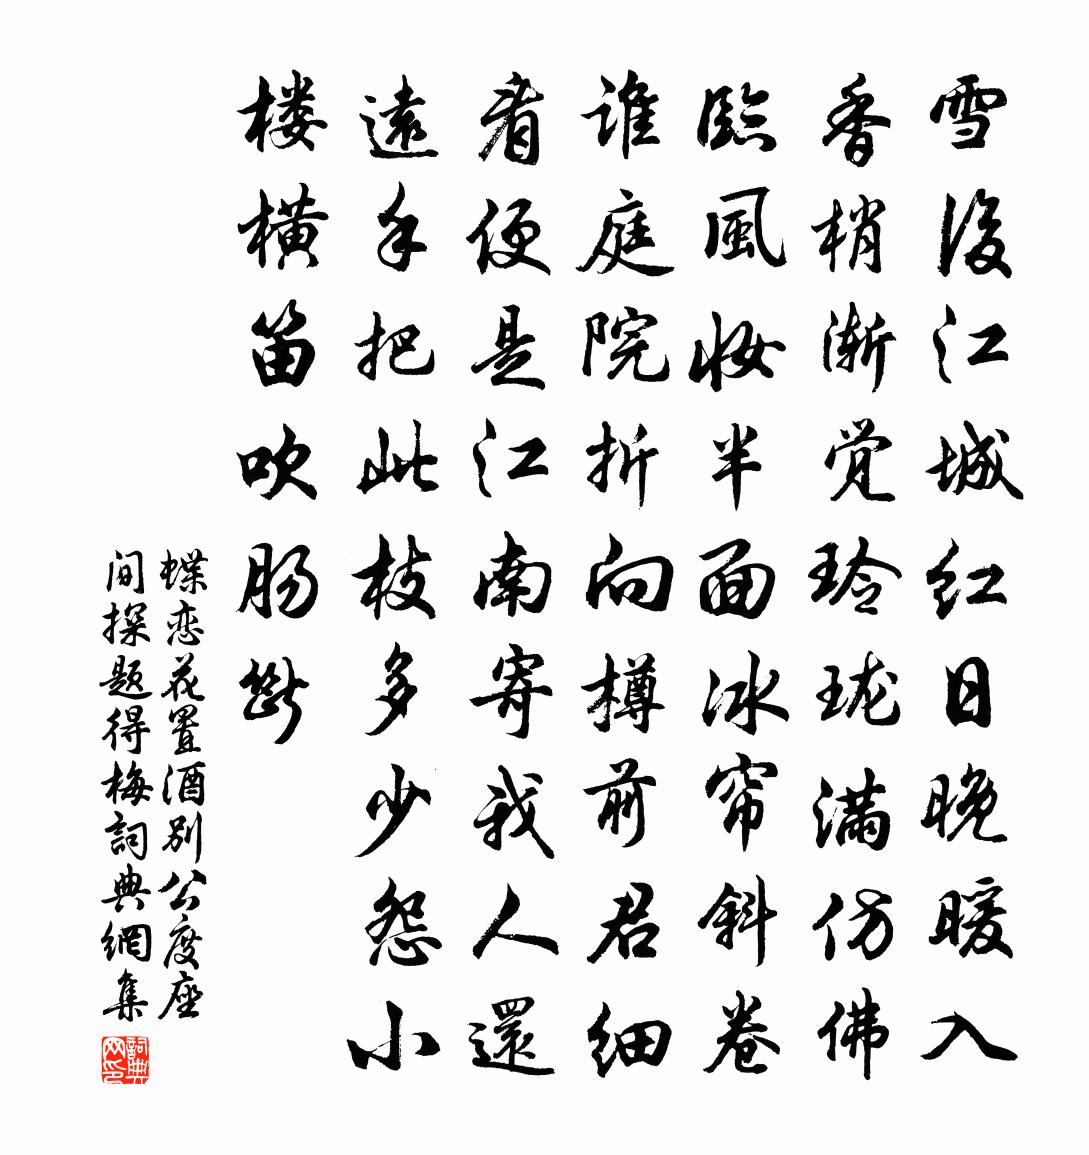 雪後江城红日晚暖入
香梢渐觉玲珑满仿佛
臨風妆半面冰帘斜卷
谁庭院折向樽前君细
看便是江南寄我人還
遠手把此枝多少怨小
楼横笛吹肠斷
蝶恋花置酒别公度座
间探题得梅詞典網集
詞典网印